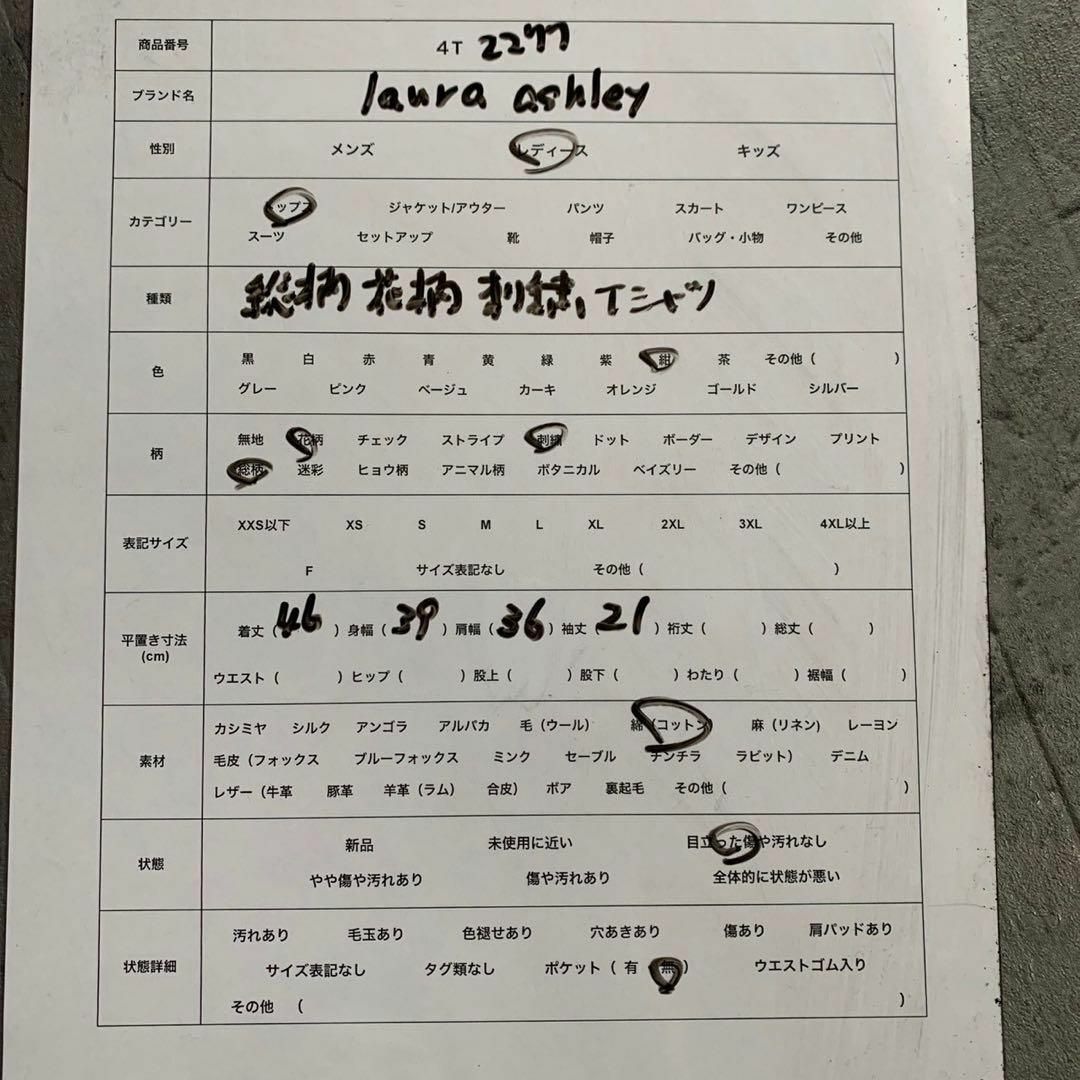 商品番号 4T 2277
ブランド名 laura ashley
性別 メンズ レディース キッズ
カテゴリー トップス ジャケット/アウター パンツ スカート ワンピース
スーツ セットアップ 靴 帽子 バッグ・小物 その他
種類 総柄 花柄 刺繍 Tシャツ
色 黒 白 赤 青 黄 緑 紫 紺 茶 その他( )
グレー ピンク ベージュ カーキ オレンジ ゴールド シルバー
柄 無地 花柄 チェック ストライプ 刺繍 ドット ボーダー デザイン プリント
総柄 迷彩 ヒョウ柄 アニマル柄 ボタニカル ベイズリー その他( )
表記サイズ XXS以下 XS S M L XL 2XL 3XL 4XL以上
F サイズ表記なし その他( )
平置き寸法 着丈(46)身幅(39)肩幅(36)袖丈(21)裄丈( )総丈( )
(cm) ウエスト( )ヒップ( )股上( )股下( )わたり( )裾幅( )
素材 カシミヤ シルク アンゴラ アルパカ 毛(ウール) 綿(コットン) 麻(リネン) レーヨン
毛皮(フォックス ブルーフォックス ミンク セーブル チンチラ ラビット) デニム
レザー(牛革 豚革 羊革(ラム) 合皮) ボア 裏起毛 その他( )
状態 新品 未使用に近い 目立った傷や汚れなし
やや傷や汚れあり 傷や汚れあり 全体的に状態が悪い
状態詳細 汚れあり 毛玉あり 色褪せあり 穴あきあり 傷あり 肩パッドあり
サイズ表記なし タグ類なし ポケット(有 無) ウエストゴム入り
その他 ( )